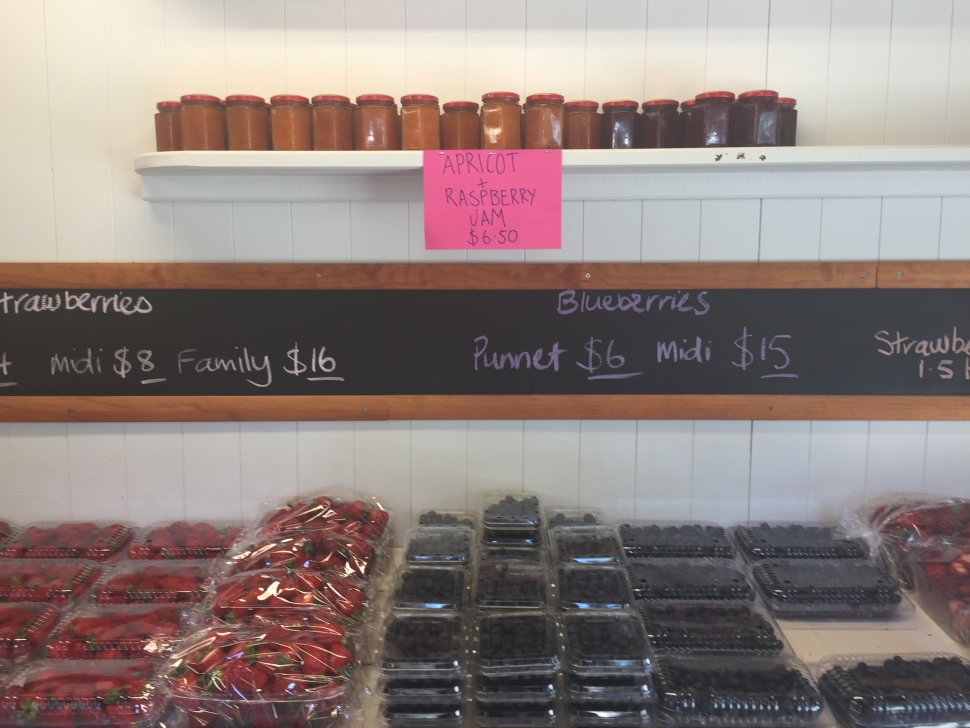 APRICOT
+
RASPBERRY
JAM
$6.50
trawberries
Blueberries
4 midi $8 Family $16
Punnet $6 midi $15
Strawbe
1.5